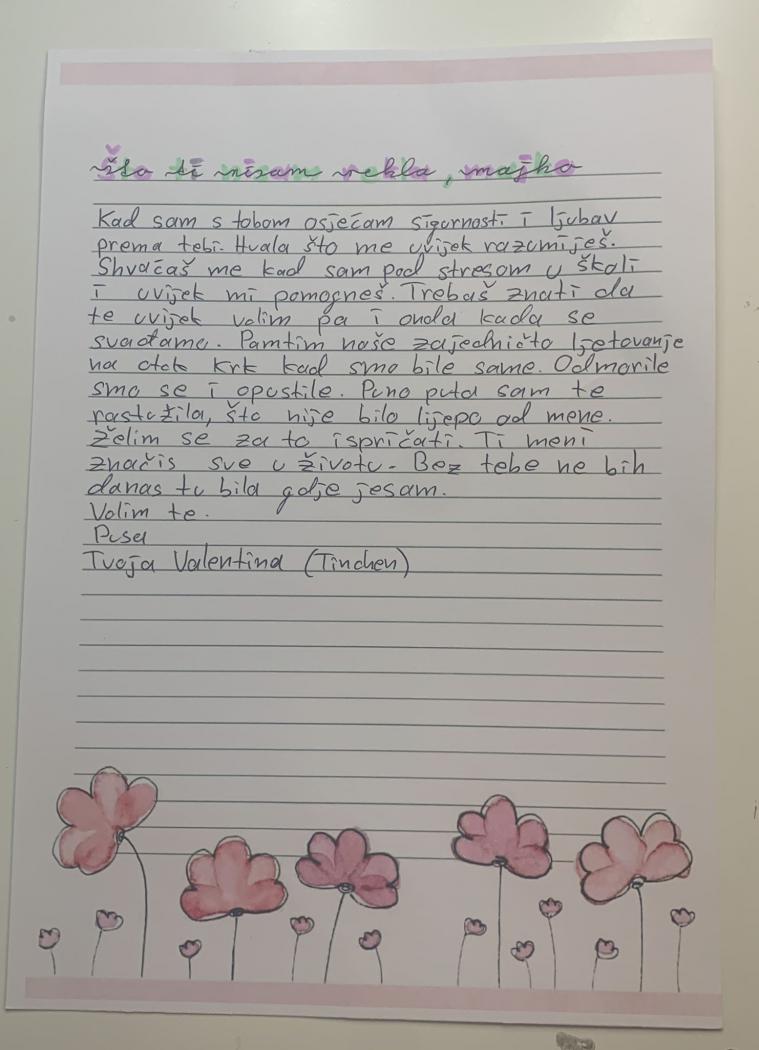 Što ti nisam rekla, majko
Kad sam s tobom osjećam sigurnosti i ljubav
prema tebi. Hvala što me uvijek razumiješ.
Shvaćaš me kad sam pod stresom u školi
i uvijek mi pomogneš. Trebaš znati da
te uvijek volim pa i onda kada se
svađamo. Pamtim naše zajedničko ljetovanje
na otok Krk kad smo bile same. Odmorile
smo se i opustile. Puno puta sam te
rastužila, što nije bilo lijepo od mene.
Želim se za to ispričati. Ti meni
značis sve u životu. Bez tebe ne bih
danas tu bila gdje jesam.
Volim te.
Pusa
Tvoja Valentina (Tinchen)